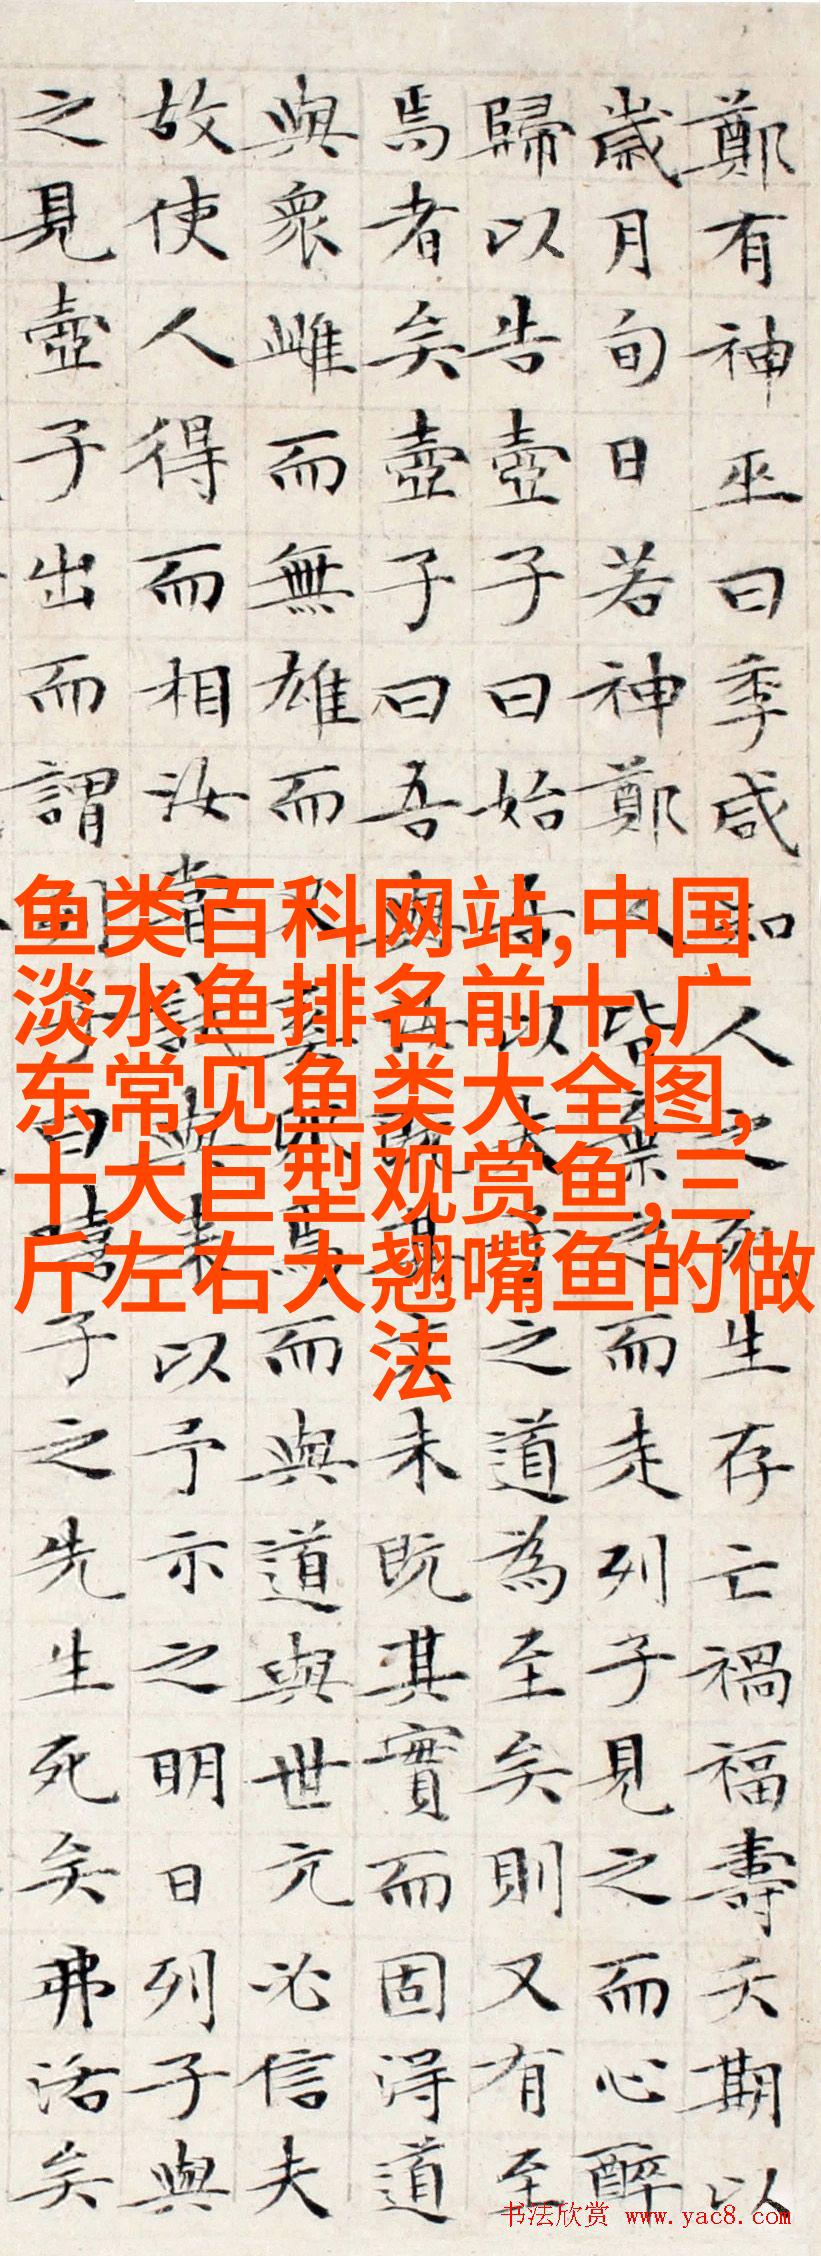 鄭有神巫曰季咸知人之死生存亡禍福壽夭期以
歲月旬日若神鄭人皆棄之而走列子見之而心醉
歸以告壺子曰始吾以夫子之道為至矣則又有至
焉者矣壺子曰吾與汝既其文未既其實而固得道
與衆雌而無雄而又奚卵焉而與道與世亢必信夫
故使人得而相汝嘗試與来以予示之明日列子與
之見壺子出而謂列子曰嘻子之先生死矣弗活矣
鱼类百科网站,中国
淡水鱼排名前十,广
东常见鱼类大全图,
十大巨型观赏鱼,三
斤左右大翘嘴鱼的做
法
书法欣赏 www.yac8.com